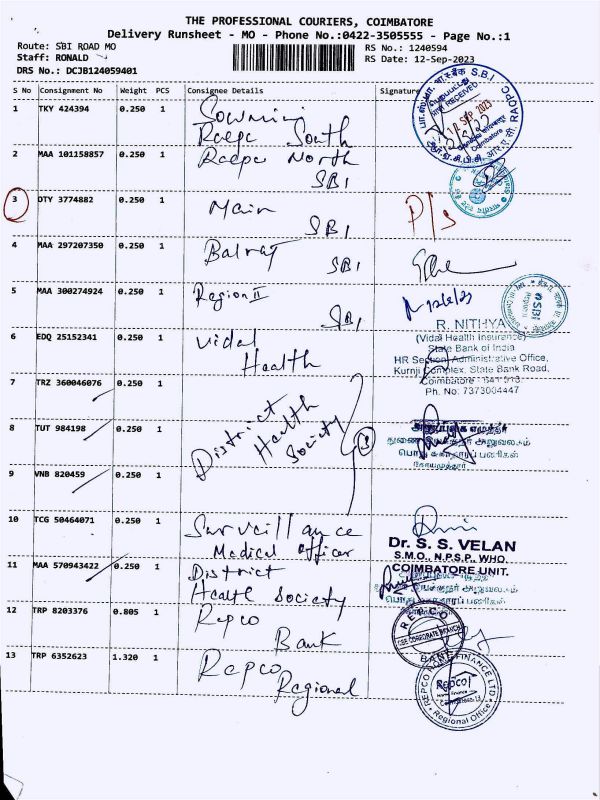 THE PROFESSIONAL COURIERS, COIMBATORE
Delivery Runsheet - MO - Phone No.:0422-3505555 - Page No.:1
Route: SBI ROAD MO
RS No.: 1240594
Staff: RONALD
RS Date: 12-Sep-2023
DRS No.: DCJB124059401
S No Consignment No Weight PCS Consignee Details Signature
1 TKY 424394 0.250 1
South
2 MAA 101158857 0.250 1 North
SBI
3 DTY 3774882 0.250 1 Main
SBI P/s
4 MAA 297207350 0.250 1 Balraj
SBI
5 MAA 300274924 0.250 1 Region II
SBI
6 EDQ 25152341 0.250 1 Vidal
Health
R. NITHYA
(Vidal Health Insurance)
State Bank of India
HR Section, Administrative Office,
Kurnji Complex, State Bank Road,
Coimbatore - 641 018.
Ph. No: 7373004447
7 TRZ 360046076 0.250 1
8 TUT 984198 0.250 1
9 VNB 820459 0.250 1
District
Health
Society
3
துணை இயக்குநர் அலுவலகம்
பொது சுகாதாரப் பணிகள்
கோயமுத்தூர்
10 TCG 50464071 0.250 1 Surveillance
Medical Officer
Dr. S. S. VELAN
S.M.O., N.P.S.P., WHO.
COIMBATORE UNIT.
11 MAA 570943422 0.250 1 District
Health Society
12 TRP 8203376 0.805 1 Repco
Bank
REPCO
CBE CORPORATE BRANCH
BANK
13 TRP 6352623 1.320 1 Repco
Regional
REPCO HOME FINANCE LTD
Repco
Home Finance
Regional Office